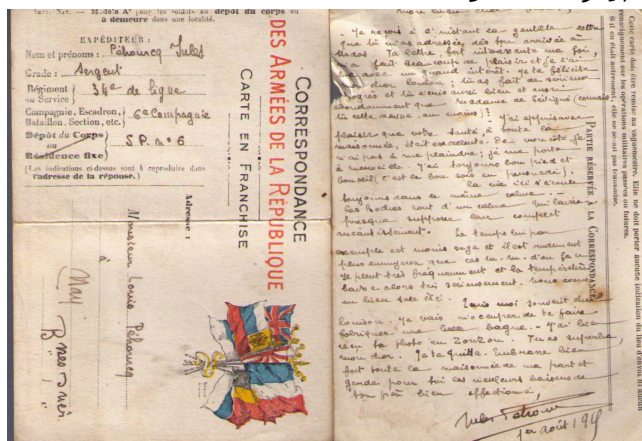 à demeure dans une localité.
EXPÉDITEUR :
Nom et prénoms : Péhourcq Jules
Grade : Sergent
Régiment ou Service } 34e de ligne
Compagnie, Escadron, Bataillon, Section, etc. } 6e Compagnie
Dépôt du Corps ou Résidence fixe } S.P. n° 6
(Les indications ci-dessus sont à reproduire dans l'adresse de la réponse.)
CORRESPONDANCE
DES ARMÉES DE LA RÉPUBLIQUE
CARTE EN FRANCHISE
Adresse :
Monsieur Louis Péhourcq
à
PARTIE RÉSERVÉE À LA CORRESPONDANCE
Cette carte doit être remise au vaguemestre. Elle ne doit porter aucune indication du lieu d'envoi ni aucun
renseignement sur les opérations militaires passées ou futures.
S'il en était autrement, elle ne serait pas transmise.
Je reçois à l'instant ta gentille lettre
que tu m'as adressée dès ton arrivée à
Ta lettre, fort intéressante ma foi,
m'a fait beaucoup de plaisir et je l'ai
lue avec un grand intérêt. Je te félicite
mon cher ; tu as fait de sérieux
progrès et tu écris aussi bien et aussi
abondamment que Madame de Sévigné (connais
tu cette dame, au moins)? J'apprends avec
plaisir que votre santé, à toute la
maisonnée, était excellente. De mon côté, je
n'ai pas à me plaindre ; je me porte
à merveille. J'ai toujours bon pied et
bon œil
La vie ici s'écoule
toujours dans le même calme.
Les Boches sont d'un calme qui laisse
presque supposer leur complet
anéantissement. Le temps lui par
exemple est moins sage et il est rudement
plus ennuyeux que ces m. m. d'en face
Il pleut très fréquemment et la température
baisse alors très sérieusement. Nous avons
un bien sale été. Écris moi souvent cher
Louison. Je vais m'occuper de te faire
fabriquer une belle bague. J'ai bien
reçu ta photo en Zouzou. Tu es superbe,
mon cher. Je te quitte. Embrasse bien
fort toute la maisonnée de ma part et
garde pour toi les meilleurs baisers de
ton père bien affectionné.
1er août 191